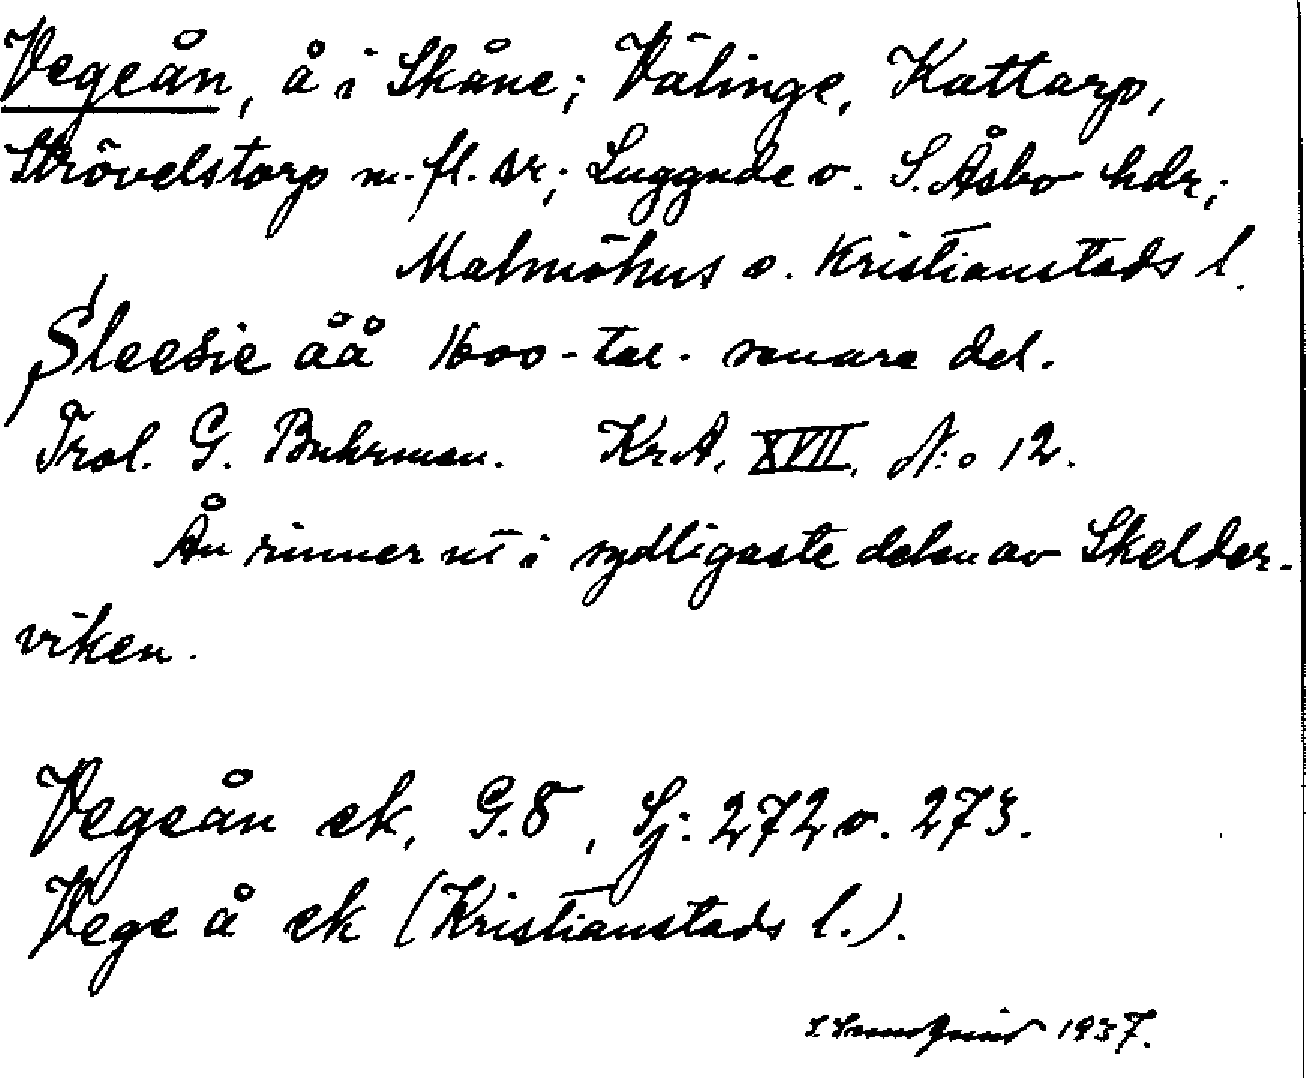 Vegeån, å i Skåne; Välinge, Kattarp,
Strövelstorp m. fl. sr; Luggude o. S. Åsbo hdr;
Malmöhus o. Kristianstads l.
Sleesie åå 1600-tal. senare del.
Trol. G. Buhrman. Kr.A. XVII, N:o 12.
Ån rinner ut i sydligaste delen av Skelder-
viken.
Vegeån ek, G.8, Sj: 272 o. 273.
Vege å ek (Kristianstads l.).
1937.